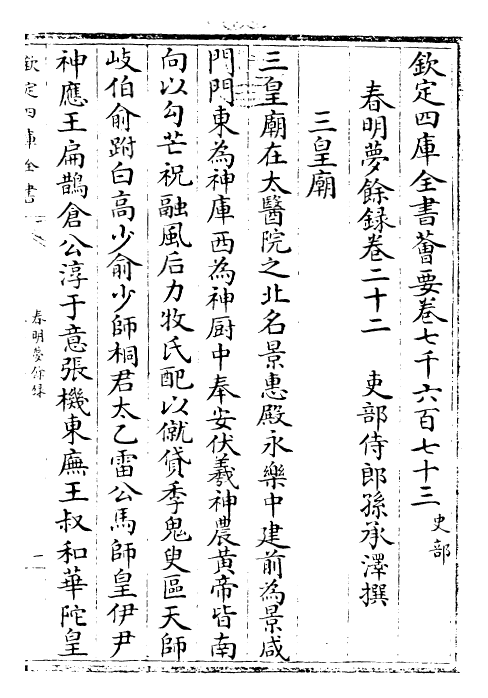 欽定四庫全書薈要卷七千六百七十三 史部
春明夢餘録卷二十二 吏部侍郎孫承澤撰
三皇廟
三皇廟在太醫院之北名景惠殿永樂中建前為景咸
門門東為神庫西為神厨中奉安伏羲神農黃帝皆南
向以勾芒祝融風后力牧氏配以僦貸季鬼臾區天師
岐伯俞跗白高少俞少師桐君太乙雷公馬師皇伊尹
神應王扁鵲倉公淳于意張機東廡王叔和華陀皇
欽定四庫全書
春明夢餘録
一